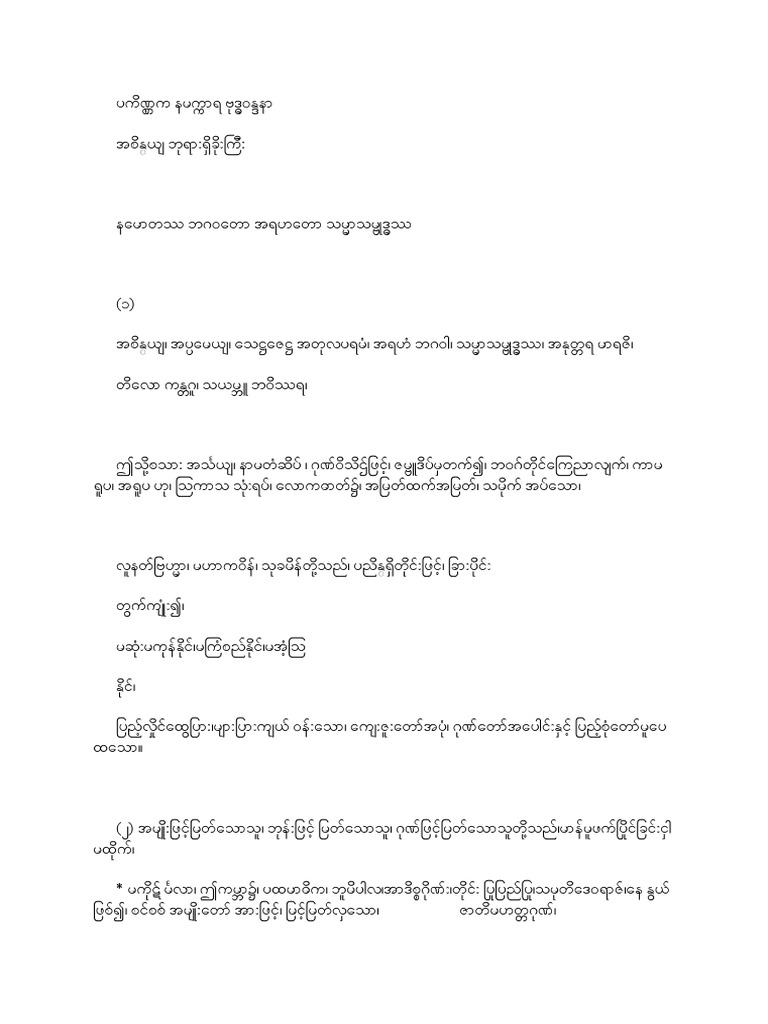 ပကိဏ္ဏက နမက္ကာရ ဗုဒ္ဓဝန္ဒနာ
အစိန္တေယျ ဘုရားရှိခိုးကြီး
နမောတဿ ဘဂဝတော အရဟတော သမ္မာသမ္ဗုဒ္ဓဿ
(၁)
အစိန္တေယျ၊ အပ္ပမေယျ၊ သေဋ္ဌဇေဋ္ဌ အတုလပရမံ၊ အရဟံ ဘဂဝါ၊ သမ္မာသမ္ဗုဒ္ဓဿ၊ အနုတ္တရ မာရဇိ၊
တိလော ကန္တဂူ၊ သယမ္ဘူ ဘဝိဿရ၊
ဤသို့စသား အသင်္ချေ၊ နာမတံဆိပ် ၊ ဂုဏ်ဝိသိဋ်ဖြင့်၊ ဇမ္ဗူဒိပ်မှတက်၍၊ ဘဝဂ်တိုင်ကြေညာလျက်၊ ကာမ
ရူပ၊ အရူပ ဟု၊ ဩကာသ သုံးရပ်၊ လောကဓာတ်၌၊ အမြတ်ထက်အမြတ်၊ သမိုက် အပ်သော၊
လူနတ်ဗြဟ္မာ၊ မဟာကဝိန်၊ သုခမိန်တို့သည်၊ ပညိန္ဒြေရှိတိုင်းဖြင့်၊ ခြားပိုင်း
တွက်ကျုံး၍၊
မဆုံးမကုန်နိုင်၊မကြံစည်နိုင်၊မအံ့ဩ
နိုင်၊
ပြည့်လှိုင်ထွေပြား၊များပြားကျယ် ဝန်းသော၊ ကျေးဇူးတော်အပုံ၊ ဂုဏ်တော်အပေါင်းနှင့် ပြည့်စုံတော်မူပေ
ထသော။
(၂) အမျိုးဖြင့်မြတ်သောသူ၊ ဘုန်းဖြင့် မြတ်သောသူ၊ ဂုဏ်ဖြင့်မြတ်သောသူတို့သည်၊မာန်မူဖက်ပြိုင်ခြင်းငှါ
မထိုက်၊
* မကိုဋ် မင်္ဂလာ၊ ဤကမ္ဘာ၌၊ ပထမာဓိက၊ ဘူမိပါလ၊အာဒိစ္စဂိုဏ်း၊တိုင်း ပြုပြည်ပြု၊သမုတိဒေဝရာဇ်၊နေ နွယ်
ဖြစ်၍၊ စင်စစ် အမျိုးတော် အားဖြင့်၊ မြင့်မြတ်လှသော၊ ဇာတိမဟတ္တဂုဏ်၊